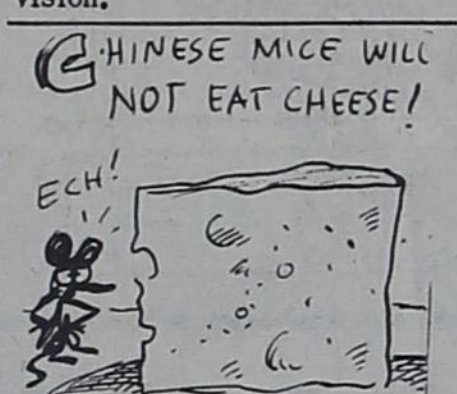 vision.
CHINESE MICE WILL
NOT EAT CHEESE!
ECH!